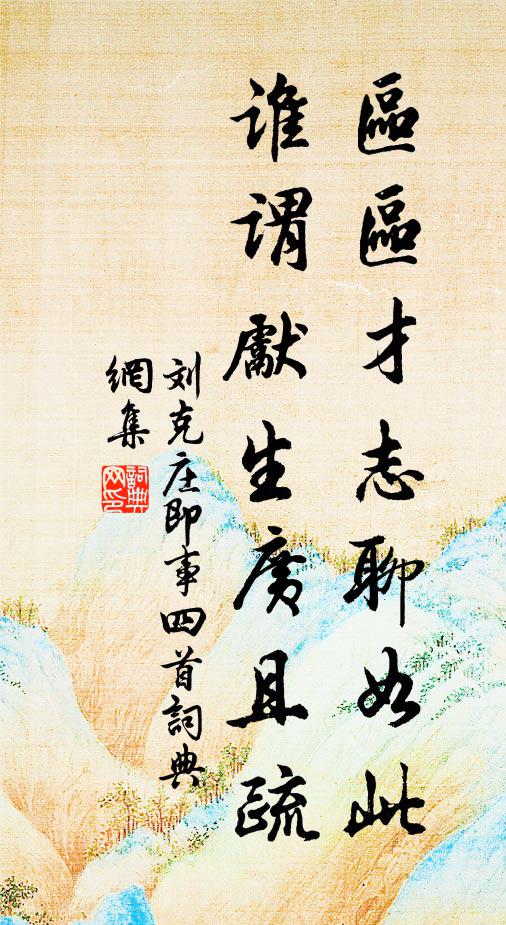 區區才志聊如此
誰謂獻生廣且疏
刘克庄即事四首詞典
網集
詞典网印